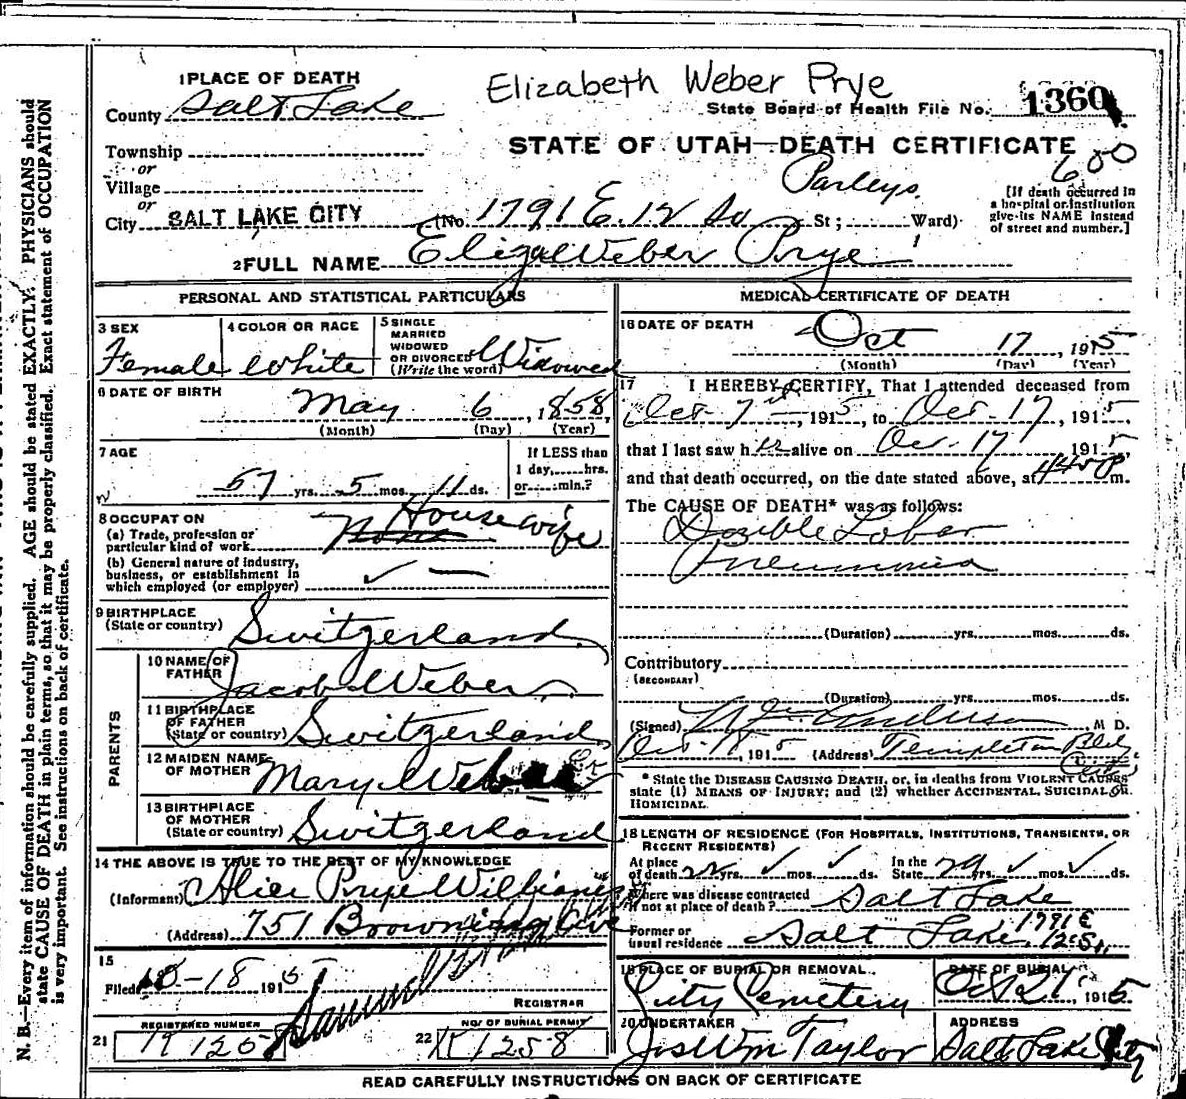 Elizabeth Weber Prye
1 PLACE OF DEATH
County Salt Lake
State Board of Health File No. 1360
Township
or
Village
or
City SALT LAKE CITY
STATE OF UTAH—DEATH CERTIFICATE
600
Parleys
(No 1791 E. 12 So St; Ward)
[If death occurred in
a hospital or institution
give its NAME instead
of street and number.]
2 FULL NAME Eliza Weber Prye
PERSONAL AND STATISTICAL PARTICULARS
3 SEX
Female
4 COLOR OR RACE
White
5 SINGLE
MARRIED
WIDOWED
OR DIVORCED
(Write the word)
Widowed
6 DATE OF BIRTH
May 6, 1858,
(Month) (Day) (Year)
7 AGE
57 yrs. 5 mos. 11 ds.
If LESS than
1 day, hrs.
or min.?
8 OCCUPATION
(a) Trade, profession or
particular kind of work
None Housewife
(b) General nature of industry,
business, or establishment in
which employed (or employer)
✓ —
9 BIRTHPLACE
(State or country) Switzerland
PARENTS
10 NAME OF
FATHER Jacob Weber
11 BIRTHPLACE
OF FATHER
(State or country) Switzerland
12 MAIDEN NAME
OF MOTHER Mary Weber
13 BIRTHPLACE
OF MOTHER
(State or country) Switzerland
14 THE ABOVE IS TRUE TO THE BEST OF MY KNOWLEDGE
(Informant) Alice Prye Williams
(Address) 751 Browning Ave
15
Filed 10-18 1915
Samuel
REGISTRAR
21 REGISTERED NUMBER
22 NO. OF BURIAL PERMIT
K 1258
MEDICAL CERTIFICATE OF DEATH
16 DATE OF DEATH
Oct 17, 1915
(Month) (Day) (Year)
17 I HEREBY CERTIFY, That I attended deceased from
Oct 7, 1915, to Oct 17, 1915,
that I last saw her alive on Oct 17 1915
and that death occurred, on the date stated above, at 1145 P m.
The CAUSE OF DEATH* was as follows:
Double Lobar
Pneumonia
(Duration) yrs. mos. ds.
Contributory
(SECONDARY)
(Duration) yrs. mos. ds.
(Signed) Anderson M D.
Oct 18, 1915 (Address) Templeton Bldg
City
* State the DISEASE CAUSING DEATH, or, in deaths from VIOLENT CAUSES
state (1) MEANS OF INJURY; and (2) whether ACCIDENTAL, SUICIDAL, OR
HOMICIDAL.
18 LENGTH OF RESIDENCE (FOR HOSPITALS, INSTITUTIONS, TRANSIENTS, OR
RECENT RESIDENTS)
At place
of death 22 yrs. ✓ mos. ✓ ds.
In the
State 29 yrs. ✓ mos. ✓ ds.
Where was disease contracted
if not at place of death? Salt Lake
Former or
usual residence Salt Lake 1791 E
12 So.
19 PLACE OF BURIAL OR REMOVAL
City Cemetery
DATE OF BURIAL
Oct 21, 1915
20 UNDERTAKER
Jos Wm Taylor
ADDRESS
Salt Lake City
READ CAREFULLY INSTRUCTIONS ON BACK OF CERTIFICATE
N. B.—Every item of information should be carefully supplied. AGE should be stated EXACTLY. PHYSICIANS should
state CAUSE OF DEATH in plain terms, so that it may be properly classified. Exact statement of OCCUPATION
is very important. See instructions on back of certificate.